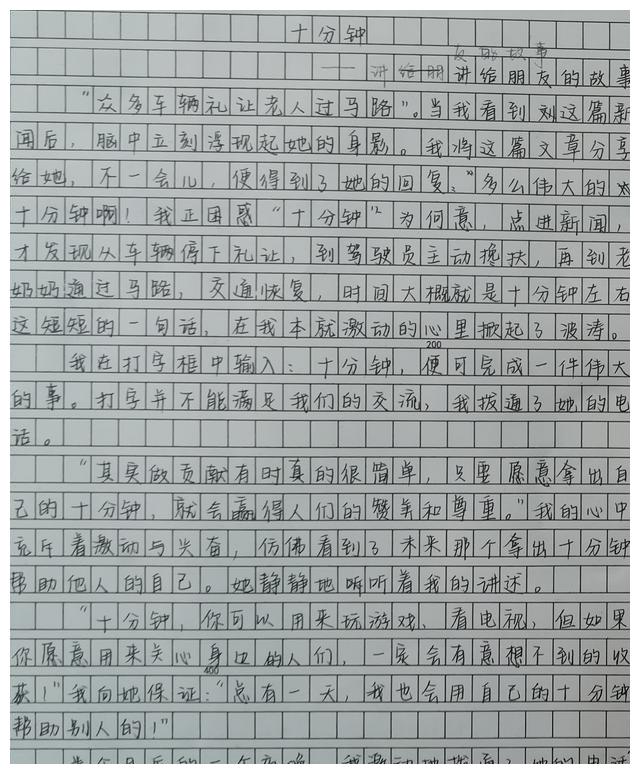 十分钟
友的故事
——讲给朋讲给朋友的故事
“众多车辆礼让老人过马路”。当我看到刘这篇新
闻后，脑中立刻浮现起她的身影。我将这篇文章分享
给她，不一会儿，便得到了她的回复：“多么伟大的
十分钟啊！我正困惑“十分钟”为何意，点进新闻，
才发现从车辆停下礼让，到驾驶员主动搀扶，再到老
奶奶通过马路，交通恢复，时间大概就是十分钟左右
这短短的一句话，在我本就激动的心里掀起了波涛。
200
我在打字框中输入：十分钟，便可完成一件伟大
的事。打字并不能满足我们的交流，我拨通了她的电
话。
“其实做贡献有时真的很简单，只要愿意拿出自
己的十分钟，就会赢得人们的赞美和尊重。”我的心中
充斥着激动与兴奋，仿佛看到了未来那个拿出十分钟
帮助他人的自己。她静静地听听着我的讲述。
“十分钟，你可以用来玩游戏、看电视，但如果
你愿意用来关心身边的人们，一定会有意想不到的收
400
获！”我向她保证：“总有一天，我也会用自己的十分钟
帮助别人的！”